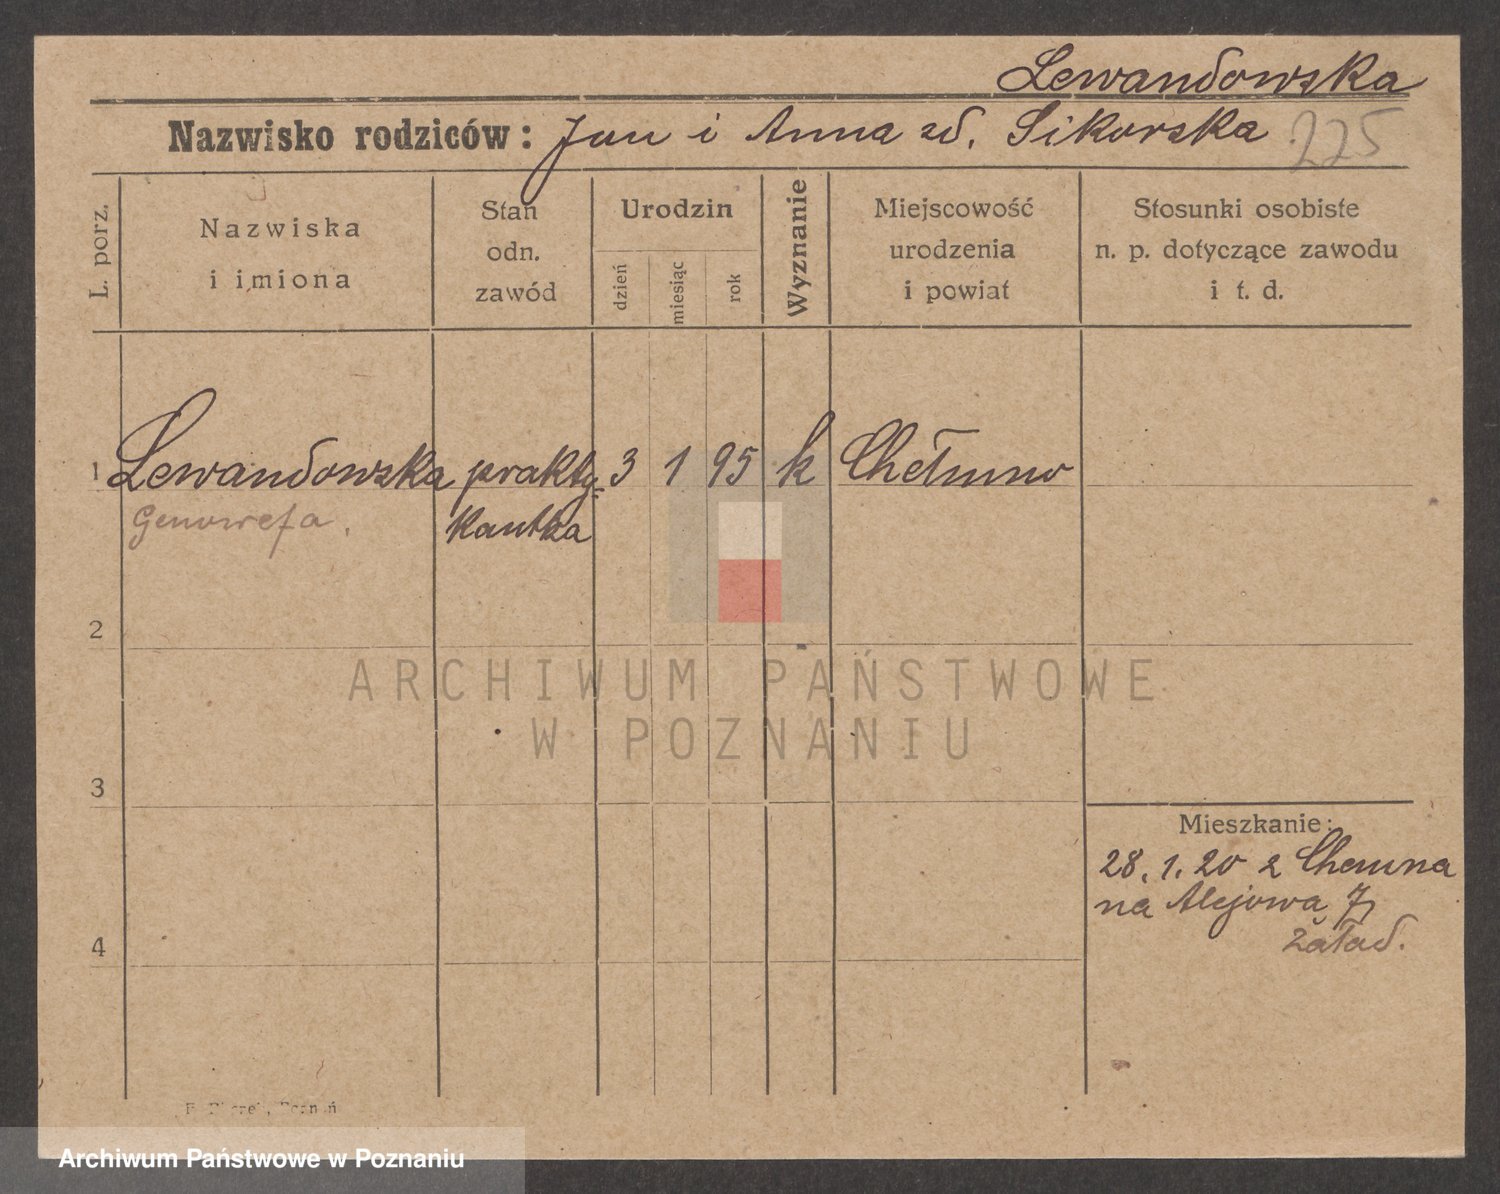 Lewandowska
Nazwisko rodziców: Jan i Anna zd. Sikorska 225
L. porz.
Nazwiska
i imiona
Stan
odn.
zawód
Urodzin
dzień
miesiąc
rok
Wyznanie
Miejscowość
urodzenia
i powiat
Stosunki osobiste
n. p. dotyczące zawodu
i t. d.
1 Lewandowska prakty= 3 1 95 k Chełmno
Genowefa. kantka
2
ARCHIWUM PAŃSTWOWE
W POZNANIU
3
Mieszkanie:
28. 1. 20 z
na Alejowa 7
4
Poznań
Archiwum Państwowe w Poznaniu